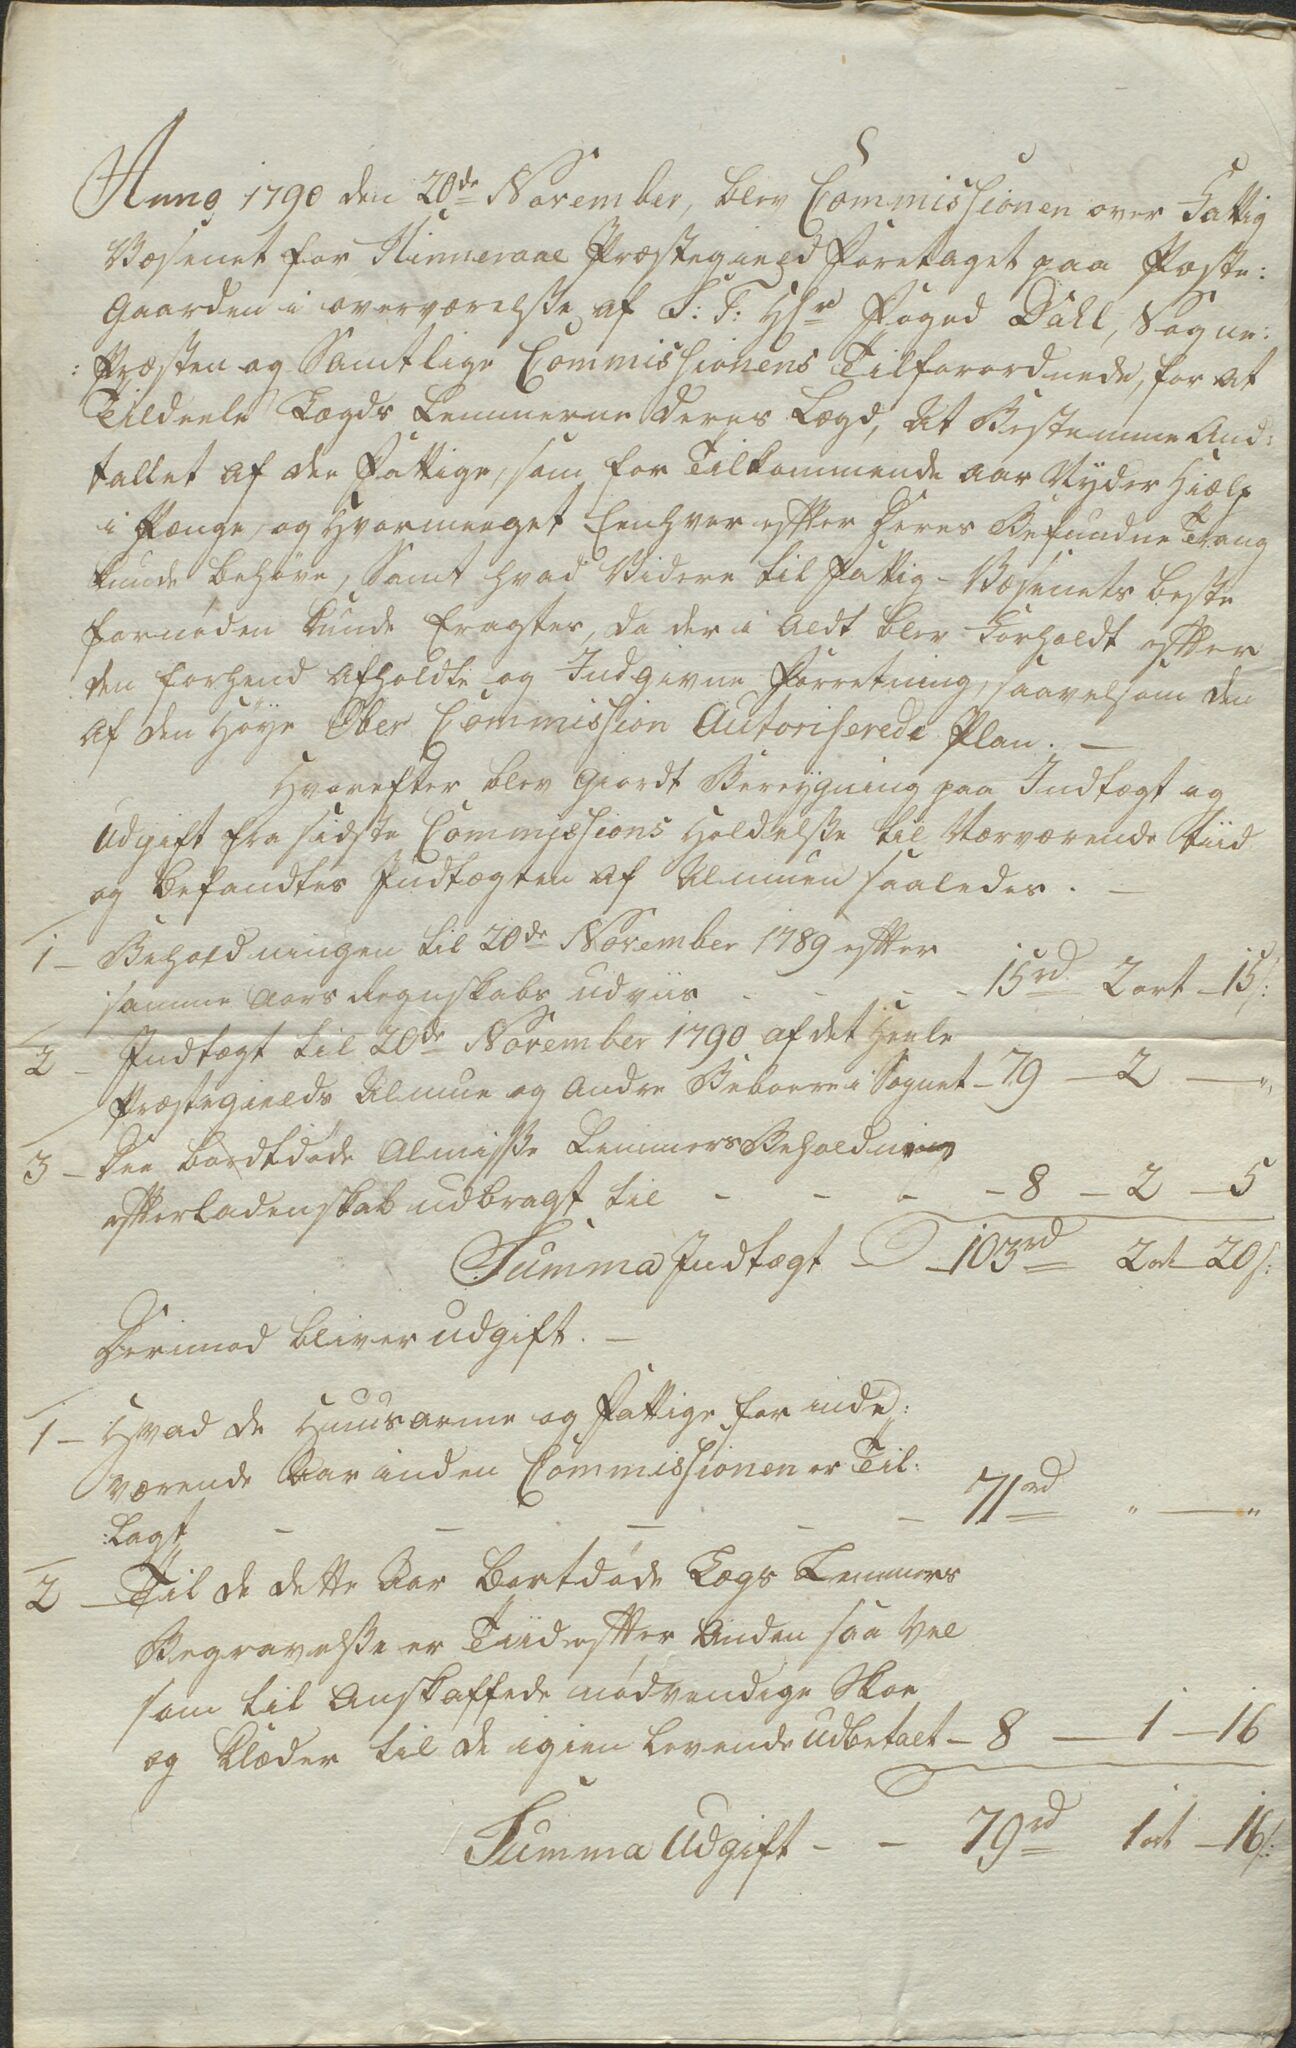 Anno 1790 den 20de November, blev Commissionen over Fattig
Væsenet for Kinneraae Præstegield Foretaget paa Præste:
Gaarden i overværelsse af S: T: Hr Foged Dahl, Sogne:
:Præsten og Samtlige Commissionens Tilforordnede, for at
Tildeele Lægds Lemmerne deres Lægd, At Bestemme And:
tallet af de Fattige, som for Tilkommende aar Nyder Hiælp
i Penge, og Hvormeeget Eenhver efter Deres Befundne Trang
kunde behöve, Samt hvad Videre til Fattig-Væsenets beste
fornöden kunde Eragtes, da der i Aldt blev Forholdt efter
den forhend Afholdte og Indgivne Forretning, saavelsom den
af den Höye Ober Commission Autoriserede Plan. —
Hvorefter blev Giordt Bereigning paa Indtægt og
Udgift fra sidste Commissions Holdelsse til Nærværende Tiid
og befandtes Indtægten af Almuen saaledes. —
1 — Beholdningen til 20de November 1789 efter
samme Aars Regnskabs udviis - - - 15rd 2ort 15s:
2 — Indtægt til 20de November 1790 af det Heele
Præstegields Almue og Andre Beboere i Sognet — 79 — 2 — "
3 — Dee bordtdöde Almisse Lemmers Beholdning
efterladenskab udbragt til - - - 8 — 2 — 5
Summa Indtægt — 103rd 2ort 20s:
Derimod bliver Udgift. —
1 — Hvad de Huusarme og Fattige for inde:
værende Aar inden Commissionen er Til:
:Lagt — — — — — 71rd " — "
2 — Til de dette Aar Bortdöde Lægs Lemmers
Begravelsse er Tiid efter Anden saa Vel
som til Anskaffede nödvendige Skoe
og Klæder til de igien Levende Udbetalt — 8 — 1 — 16
Summa Udgift - - 79rd 1ort 16s: